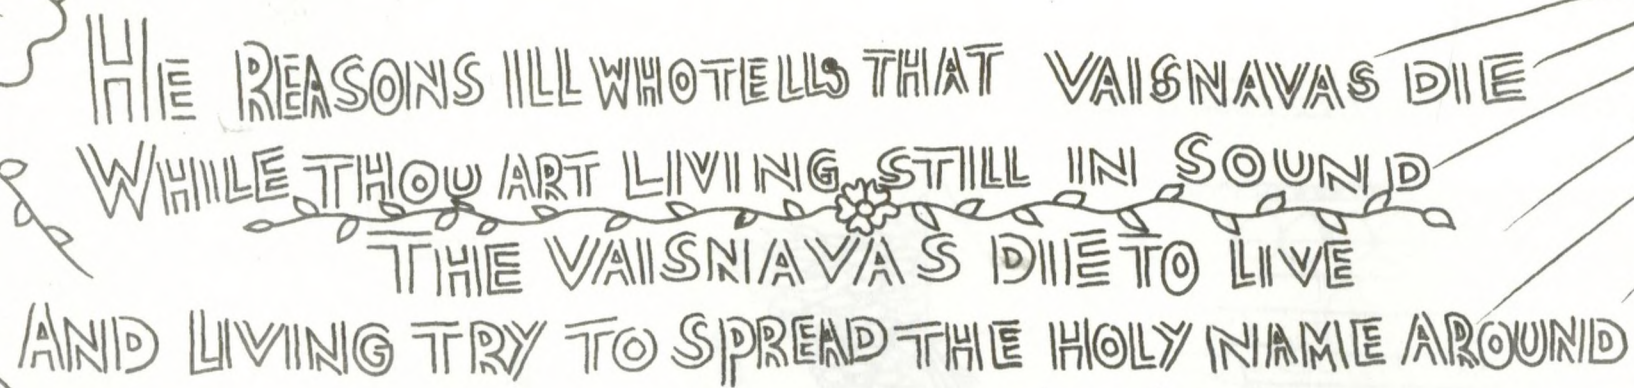 He Reasons ill who tells that Vaisnavas die
While thou art living still in Sound
The Vaisnavas die to live
And Living try to Spread the holy name around